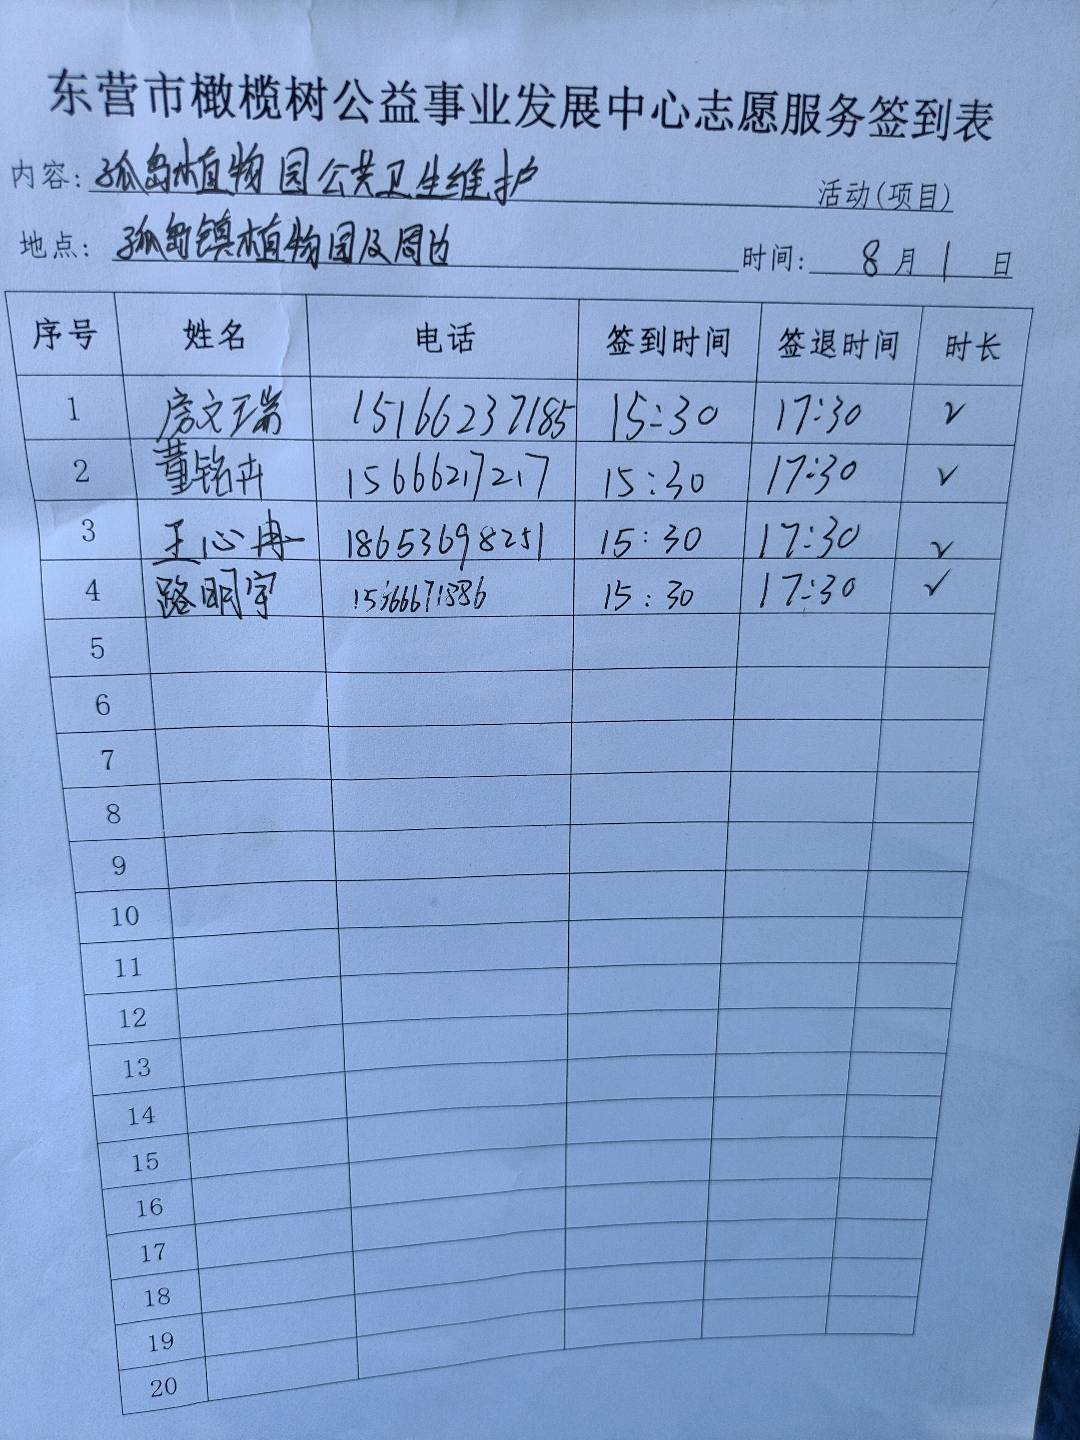 东营市橄榄树公益事业发展中心志愿服务签到表
内容: 孤岛植物园公共卫生维护 活动(项目)
地点: 孤岛镇植物园及周边 时间: 8月1日
序号 姓名 电话 签到时间 签退时间 时长
1 房文瑞 15166237185 15:30 17:30 √
2 董铭卉 15666217217 15:30 17:30 √
3 王心冉 18653698251 15:30 17:30 √
4 路明宇 15:30 17:30 √
5
6
7
8
9
10
11
12
13
14
15
16
17
18
19
20